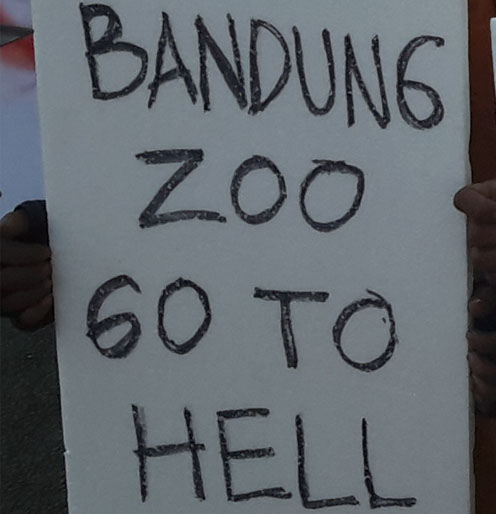 BANDUNG
ZOO
GO TO
HELL